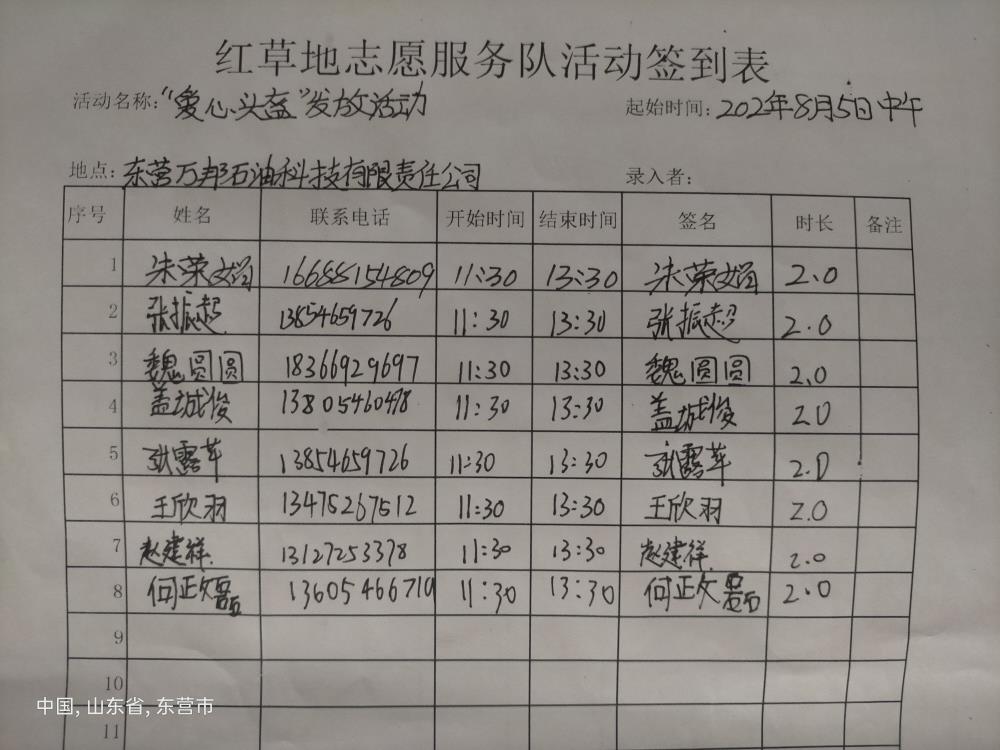 红草地志愿服务队活动签到表
活动名称:“爱心头盔”发放活动 起始时间:202年8月5日中午
地点:东营万邦石油科技有限责任公司 录入者:
序号 姓名 联系电话 开始时间 结束时间 签名 时长 备注
1 朱荣娟 16688154809 11:30 13:30 朱荣娟 2.0
2 张振超 13854659726 11:30 13:30 张振超 2.0
3 魏圆圆 18366929697 11:30 13:30 魏圆圆 2.0
4 盖城俊 13805460498 11:30 13:30 盖城俊 2.0
5 张露苹 13854659726 11:30 13:30 张露苹 2.0
6 王欣羽 13475267512 11:30 13:30 王欣羽 2.0
7 赵建祥 13127253378 11:30 13:30 赵建祥 2.0
8 何正文 13605466710 11:30 13:30 何正文 2.0
9
10
11
中国, 山东省, 东营市